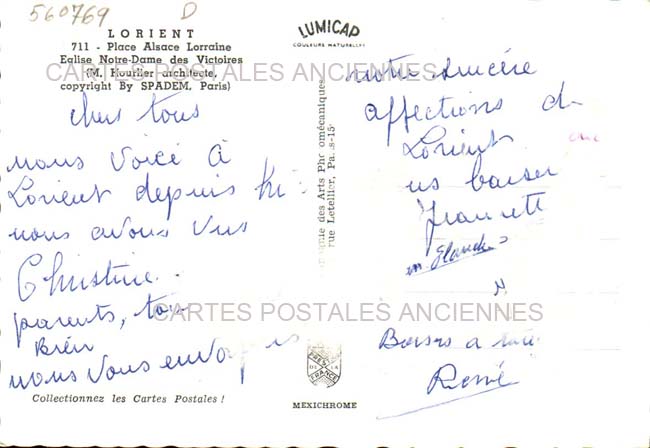 560769 D
LORIENT
711 - Place Alsace Lorraine
Eglise Notre-Dame des Victoires
(M. Hourlier architecte,
copyright By SPADEM, Paris)
LUMICAP
COULEURS NATURELLES
CARTES POSTALES ANCIENNES
chers tous
nous voici à
Lorient depuis
nous avons vus
Christine.
parents,
Bien
nous vous envoy
Collectionnez les Cartes Postales !
des Arts Ph omécaniques
rue Letellier, Pa s-15
PRES
DE LA
FRANCE
MEXICHROME
notre sincère
affections d
Lorient
baiser
Jeannette
CARTES POSTALES ANCIENNES
Baisers a
René